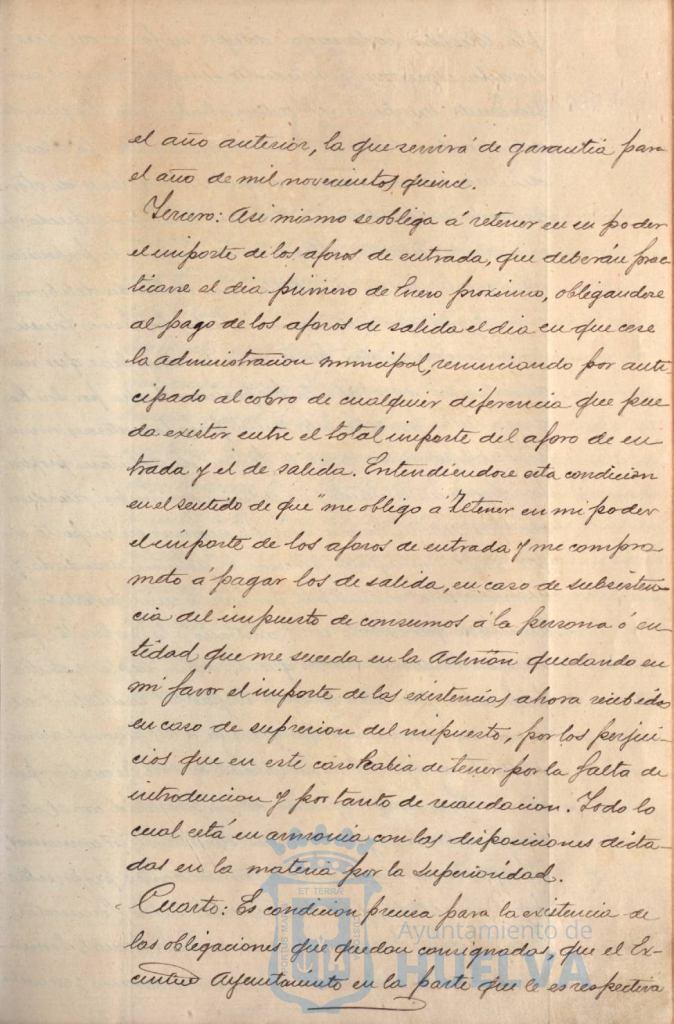 el año anterior, la que servirá de garantia para
el año de mil novecientos quince.
Tercero: Asi mismo se obliga á retener en su poder
el importe de los aforos de entrada, que deberán prac
ticarse el dia primero de Enero proximo, obligandose
al pago de los aforos de salida el dia en que cese
la administracion municipal, renunciando por anti
cipado al cobro de cualquier diferencia que pue
da existir entre el total importe del aforo de en
trada y el de salida. Entendiendose esta condicion
en el sentido de que "me obligo á retener en mi poder
el importe de los aforos de entrada y me compro
meto á pagar los de salida, en caso de subsisten
cia del impuesto de consumos á la persona ó en
tidad que me suceda en la Admón quedando en
mi favor el importe de las existencias ahora recibidas
en caso de supresion del impuesto, por los perjui-
cios que en este caso habia de tener por la falta de
introduccion y por tanto de recaudacion. Todo lo
cual está en armonia con las disposiciones dicta-
das en la materia por la Superioridad.
Cuarto: Es condicion precisa para la existencia de
las obligaciones que quedan consignadas, que el Ex-
Ayuntamiento en la parte que le es respectiva
ET TERRA
Ayuntamiento de
HUELVA